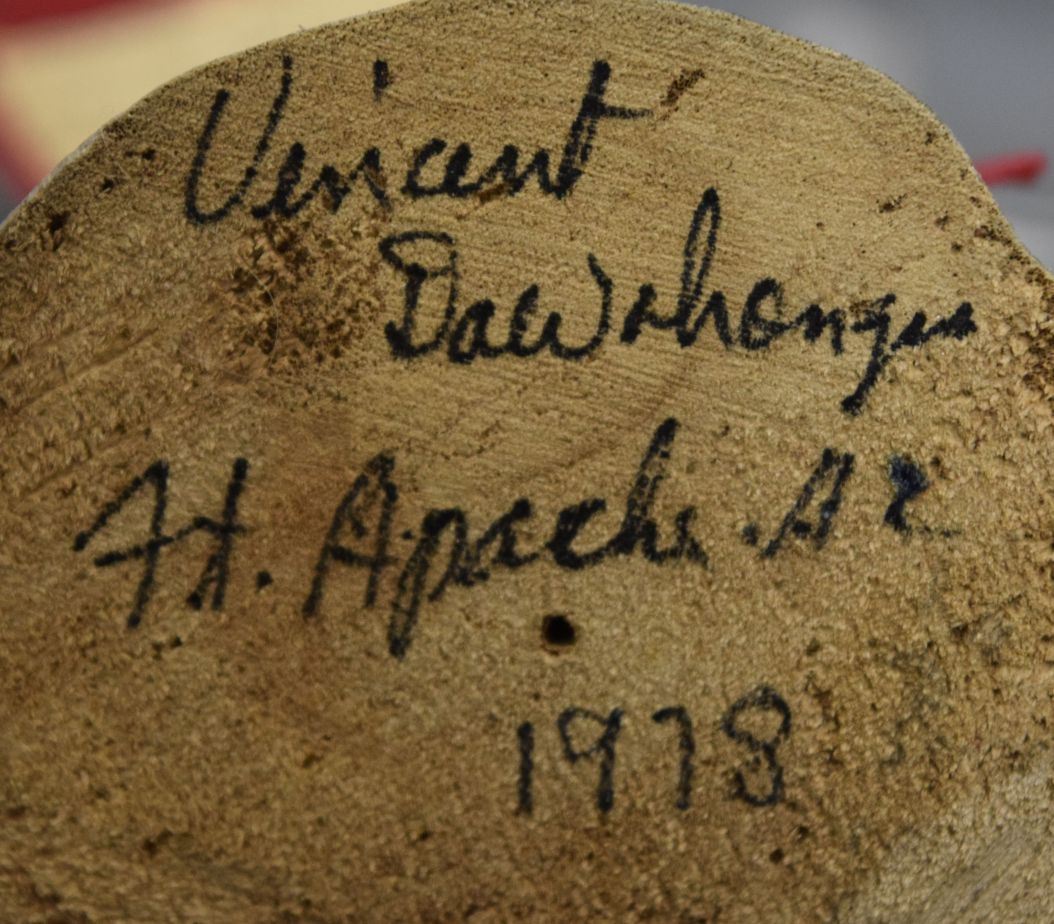 Vincent
Dawahongva
Ft. Apache. AZ
1978